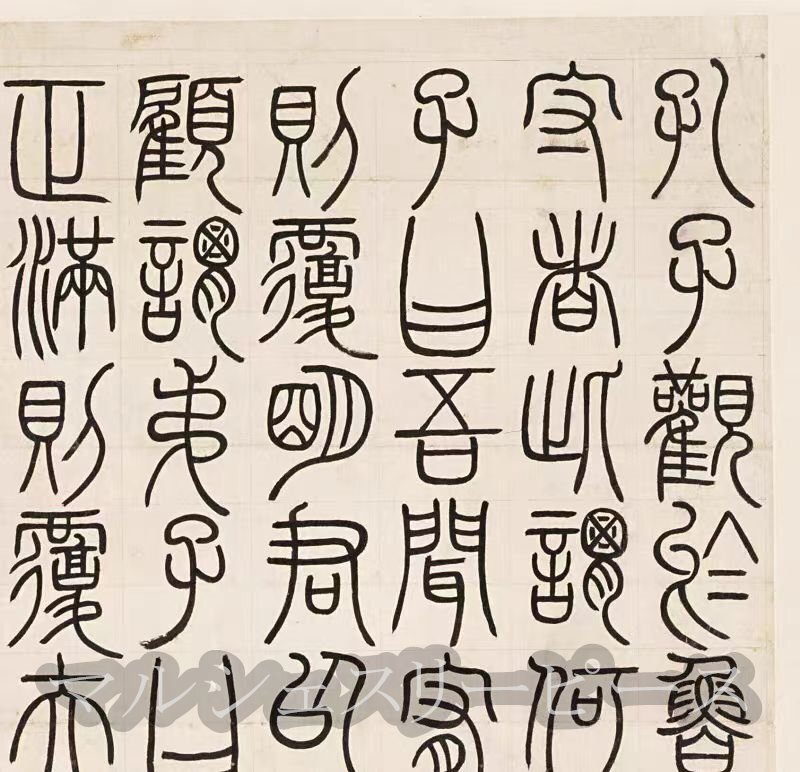 孔子觀於魯
守者此謂何
子曰吾聞宥
則覆明君以
顧謂弟子曰
正滿則覆夫
マルシェスリーピース